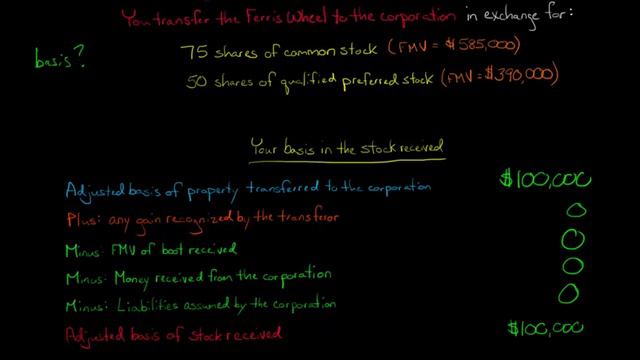 You transfer the Ferris Wheel to the corporation in exchange for:
basis?
75 shares of common stock (FMV = $585,000)
50 shares of qualified preferred stock (FMV = $390,000)
Your basis in the stock received
Adjusted basis of property transferred to the corporation $100,000
Plus: any gain recognized by the transferor 0
Minus: FMV of boot received 0
Minus: Money received from the corporation 0
Minus: Liabilities assumed by the corporation 0
Adjusted basis of stock received $100,000